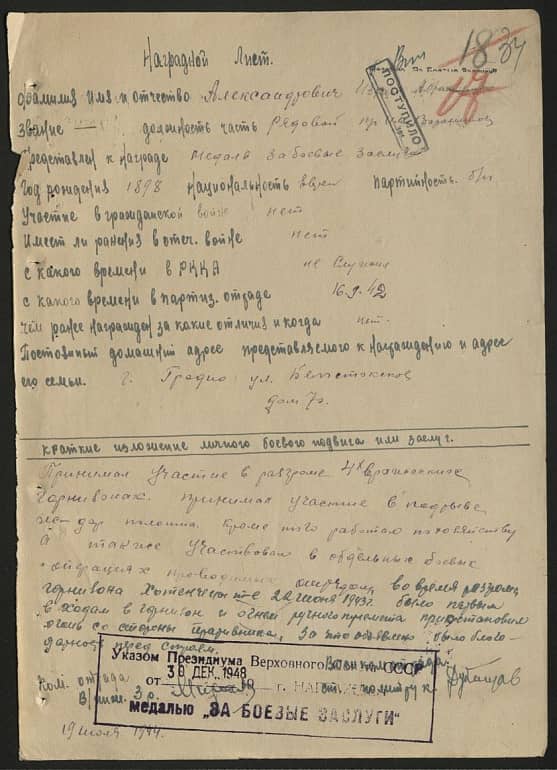 18
Наградной Лист.
ПОСТУПИЛО
Фамилия Имя и отчество Александрович
звание должность часть Рядовой
Представлен к награде медаль За боевые заслуги
Год рождения 1898 национальность еврей партийность. б/п
Участие в гражданской войне нет
Имеет ли ранения в отеч. войне нет
с какого времени в РККА не Служил
с какого времени в партиз. отряде 16.9.42
чем ранее награжден за какие отличия и когда нет.
Постоянный домашний адрес представляемого к награждению и адрес
его семьи. г. Гродно ул.
дом 7а
краткие изложение личного боевого подвига или заслуг.
Принимал Участие в разгроме 4х вражеских
Гарнизонах. принимал участие в подрыве
Кроме того работал по хозяйству
а также Участвовал в отдельных боевых
операциях проводимых отрядом, во время разгрома
гарнизона 22 июня 1943г. было первым
в ходам в гарнизон и огнем ручного пулемета приостановил
огонь со стороны противника, За что объявлено было благо-
дарность перед строем.
Ком. отряда Военком отряда
ст. политрук
Указом Президиума Верховного Совета СССР
от 30 ДЕК. 1948 г.
медалью „ЗА БОЕВЫЕ ЗАСЛУГИ"
19 июля 1944г.